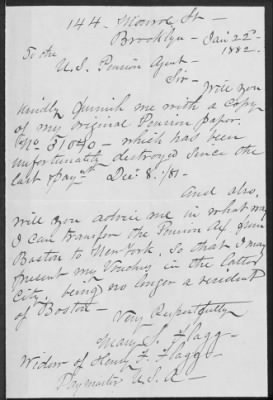 144. Monroe St -
Brooklyn - Jan 22nd
1882.
To the
U.S. Pension Agent -
Sir -
Will you
kindly furnish me with a copy
of my original Pension paper.
No. 31040 - which has been
unfortunately destroyed since the
last paymt Dec 8. /81 -
And also,
will you advise me in what way
I can transfer the Pension Ctf from
Boston to New York. So that I may
present my Voucher in the latter
City, being no longer a resident
of Boston -
Very Respectfully
Mary S. Flagg -
Widow of Henry F. Flagg -
Paymaster U.S.